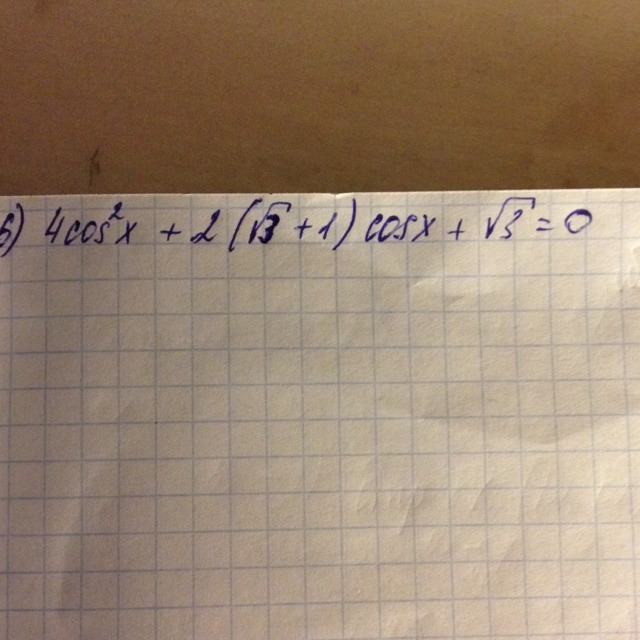 б) 4cos²x + 2(√3 + 1) cosx + √3 = 0